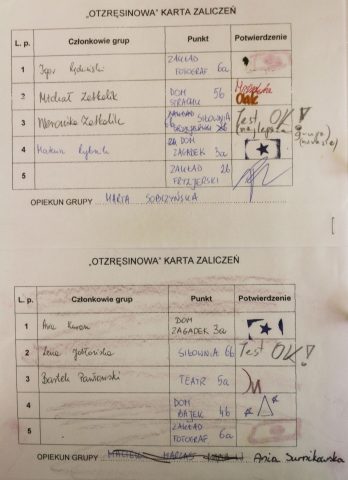 „OTZRĘSINOWA” KARTA ZALICZEŃ
L. p. Członkowie grup Punkt Potwierdzenie
1 Igor ZAKŁAD FOTOGRAF 6a
2 Michał Zetkolik DOM STRACHU 5b
3 Weronika Zetkolik SIŁOWNIA FRYZJERSKI 2b Test OK! (najlepsza grupa)
4 DOM ZAGADEK 3a
5 ZAKŁAD FRYZJERSKI
OPIEKUN GRUPY MARTA SOBCZYŃSKA
„OTZRĘSINOWA” KARTA ZALICZEŃ
L. p. Członkowie grup Punkt Potwierdzenie
1 Ana DOM ZAGADEK 3a
2 Lena SIŁOWNIA 6b Test OK!
3 Bartek Pawłowski TEATR 5a
4 DOM BAJEK 4b
5 ZAKŁAD FOTOGRAF 6a
OPIEKUN GRUPY Ania Surnikowska